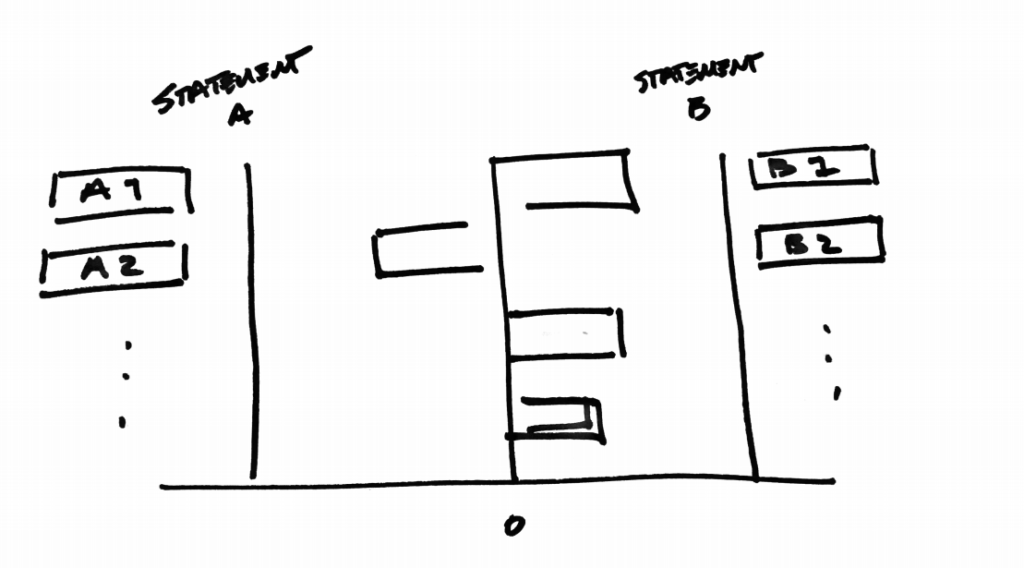 STATEMENT
A
STATEMENT
B
A 1
B 1
A 2
B 2
0